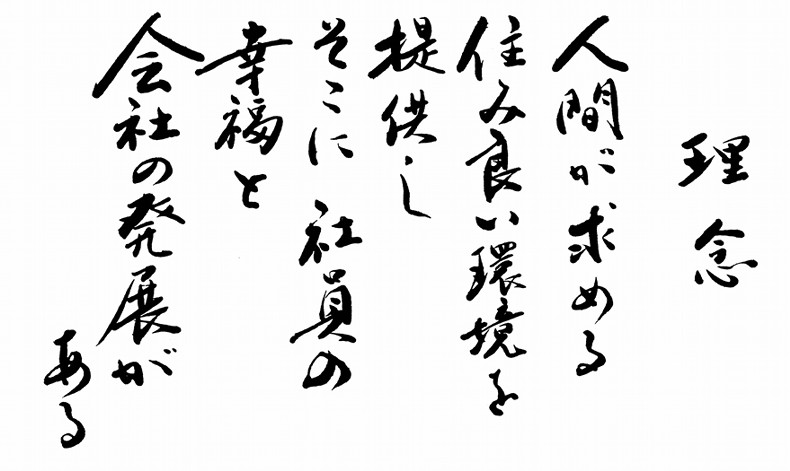 理念
人間が求める
住み良い環境を
提供し
そこに社員の
幸福と
会社の発展が
ある